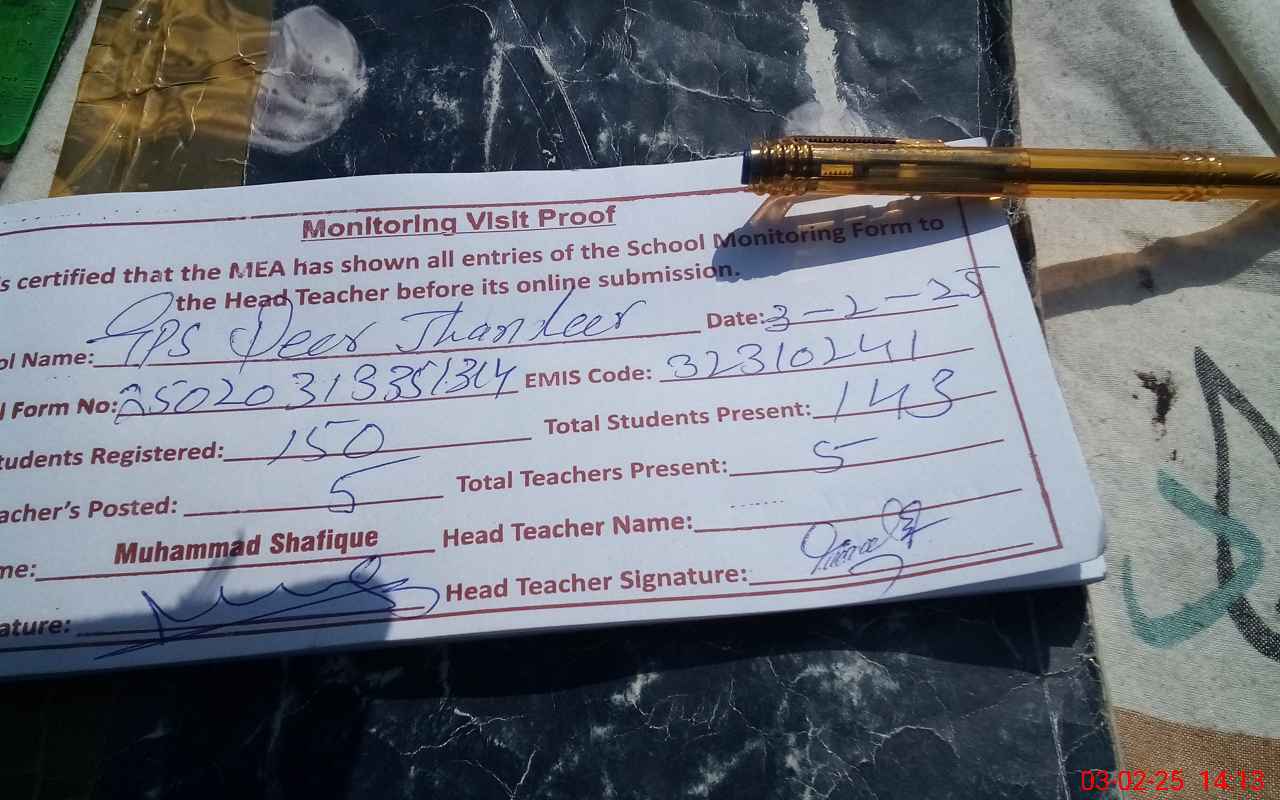 Monitoring Visit Proof
s certified that the MEA has shown all entries of the School Monitoring Form to
the Head Teacher before its online submission.
ol Name: GPS Peer Jhandeer Date: 3-2-25
l Form No: 25020313351314 EMIS Code: 32310241
tudents Registered: 150 Total Students Present: 143
acher's Posted: 5 Total Teachers Present: 5
me: Muhammad Shafique Head Teacher Name:
ature: Head Teacher Signature:
03-02-25 14:13